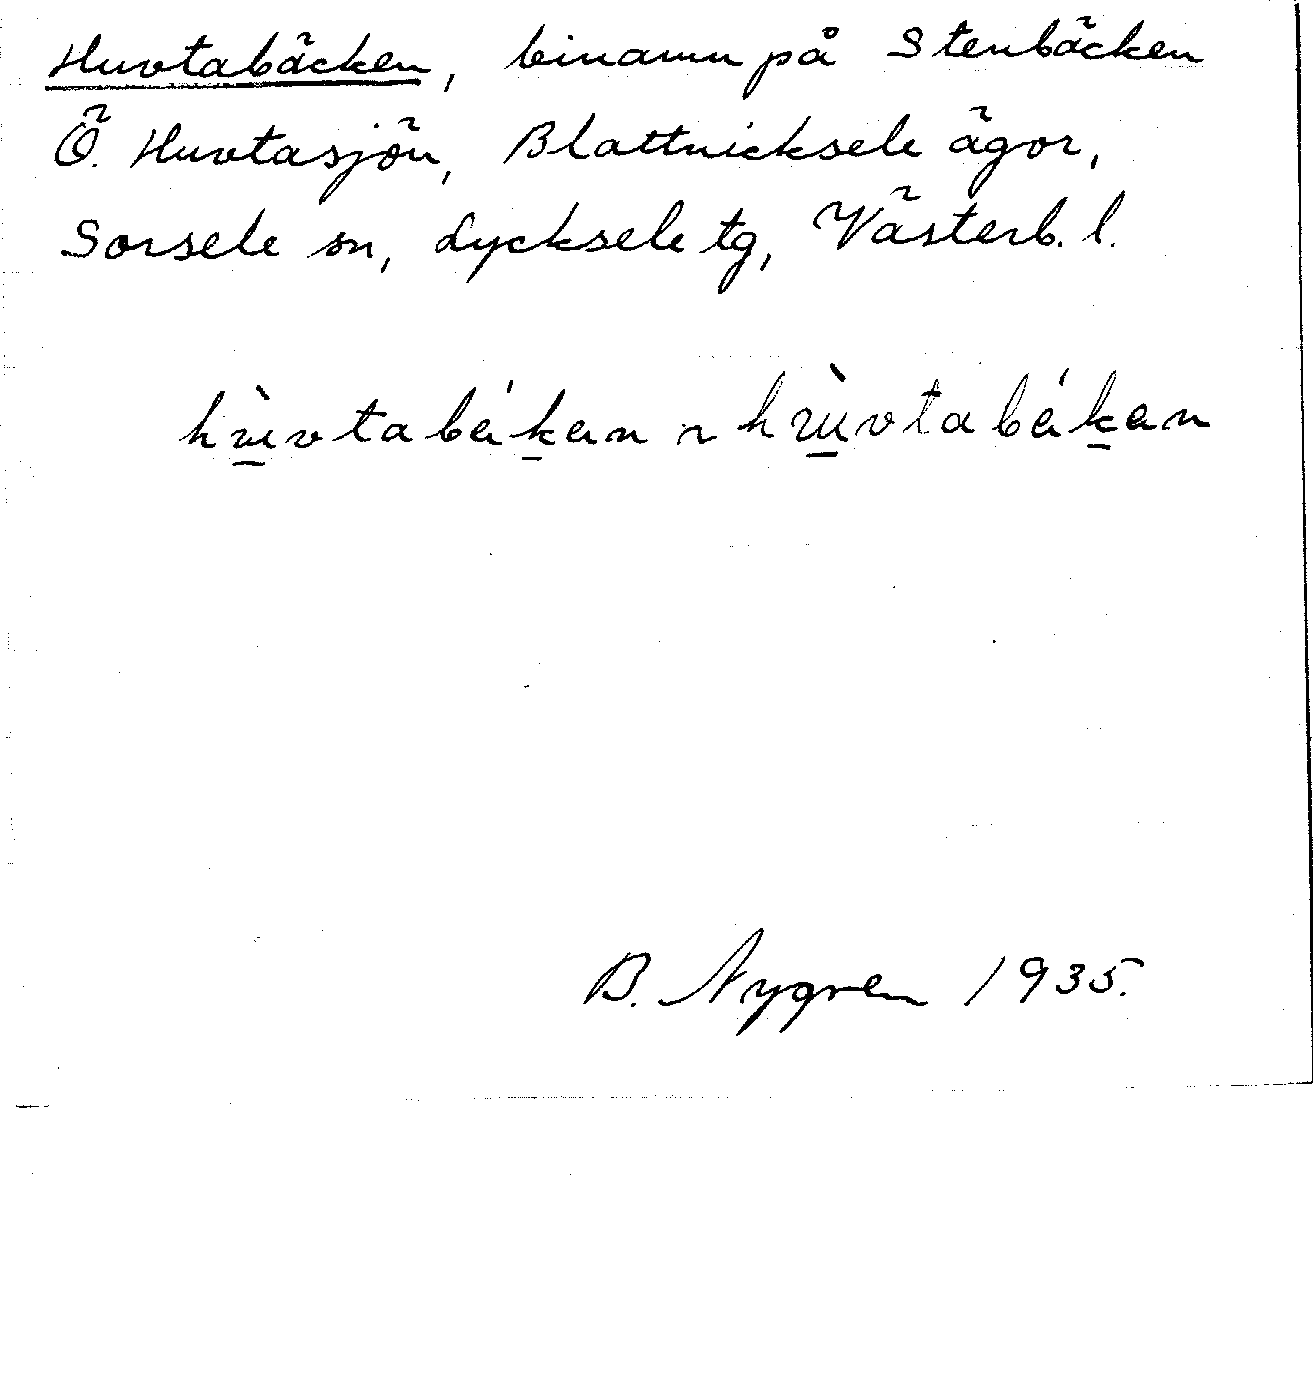 Huvtabäcken, binamn på Stenbäcken
Ö. Huvtasjön, Blattnicksele ägor,
Sorsele sn, Lycksele tg, Västerb. l.
B. Nygren 1935.